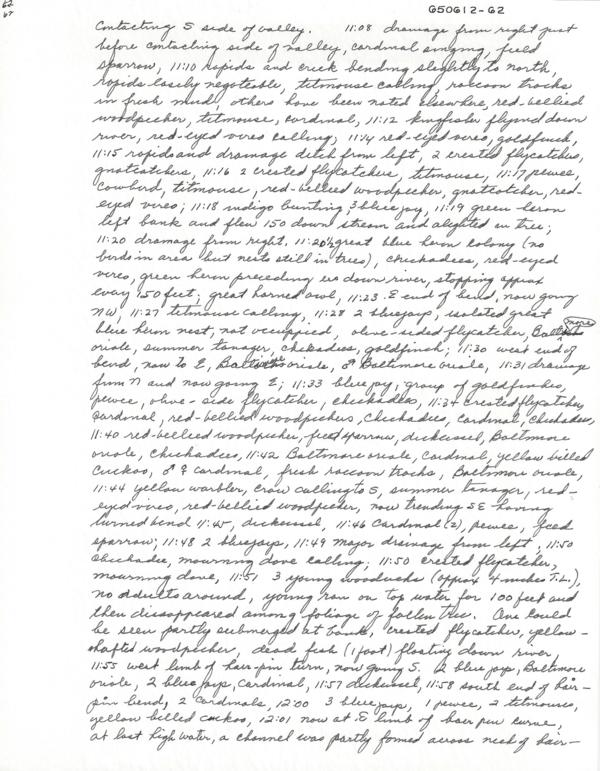 62
67
G50612-G2
Contacting S side of valley. 11:08 drainage from right just
before contacting side of valley, cardinal singing, field
sparrow, 11:10 rapids and creek bending slightly to north,
rapids easily negotiable, titmouse calling, raccoon tracks
in fresh mud, others have been noted elsewhere, red-bellied
woodpecker, titmouse, cardinal, 11:12 kingfisher flying down
river, red-eyed vireo calling; 11:14 red-eyed vireo, goldfinch,
11:15 rapids and drainage ditch from left, 2 crested flycatchers,
gnatcatchers, 11:16 2 crested flycatchers, titmouse, 11:17 pewee,
cowbird, titmouse, red-bellied woodpecker, gnatcatcher, red-
eyed vireo; 11:18 indigo bunting, 3 blue jay, 11:19 green heron
left bank and flew 150 down stream and alighted in tree;
11:20 drainage from right. 11:20½ great blue heron colony (no
birds in area but nests still in trees), chickadees, red-eyed
vireo, green heron preceding us down river, stopping approx
every 150 feet, great horned owl, 11:23 E end of bend, now going
NW, 11:27 titmouse calling, 11:28 2 bluejays, isolated great
blue heron nest, not occuppied, olive-sided flycatcher, Baltimore
oriole, summer tanager, chickadees, goldfinch; 11:30 west end of
bend, now to E, Baltimore oriole, ♂ Baltimore oriole, 11:31 drainage
from N and now going E; 11:33 blue jay, group of goldfinches,
pewee, olive-side flycatcher, chickadees, 11:34 crested flycatcher,
cardinal, red-bellied woodpeckers, chickadees, cardinal, chickadees,
11:40 red-bellied woodpecker, field sparrow, dickcissel, Baltimore
oriole, chickadees, 11:42 Baltimore oriole, cardinal, yellow billed
cuckoo, ♂ ♀ cardinal, fresh raccoon tracks, Baltimore oriole,
11:44 yellow warbler, crow calling to S, summer tanager, red-
eyed vireo, red-bellied woodpecker, now trending SE having
turned bend 11:45, dickcissel, 11:46 cardinal (2), pewee, field
sparrow; 11:48 2 bluejays, 11:49 major drainage from left, 11:50
chickadee, mourning dove calling; 11:50 crested flycatcher,
mourning dove, 11:51 3 young woodducks (approx 4 inches T.L.),
no adults around, young ran on top water for 100 feet and
then disappeared among foliage of fallen tree. One could
be seen partly submerged at bank, crested flycatcher, yellow-
shafted woodpecker, dead fish (1 foot) floating down river,
11:55 west limb of hair-pin turn, now going S. 2 blue jays, Baltimore
oriole, 2 blue jays, cardinal, 11:57 dickcissel, 11:58 south end of hair-
pin bend, 2 cardinals, 12:00 3 blue jays, 1 pewee, 2 titmouses,
yellow billed cuckoo, 12:01 now at E limb of hair pin curve,
at last high water, a channel was partly formed across neck of hair-